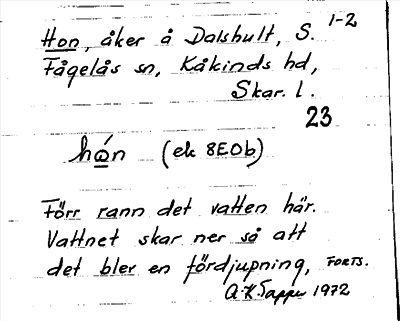 Hon, åker å Dalshult, S. 1-2
Fågelås sn, Kåkinds hd,
Skar. l.
23
hón (ek 8E0b)
Förr rann det vatten här.
Vattnet skar ner så att
det blev en fördjupning, FORTS.
A.-K. Tapper 1972